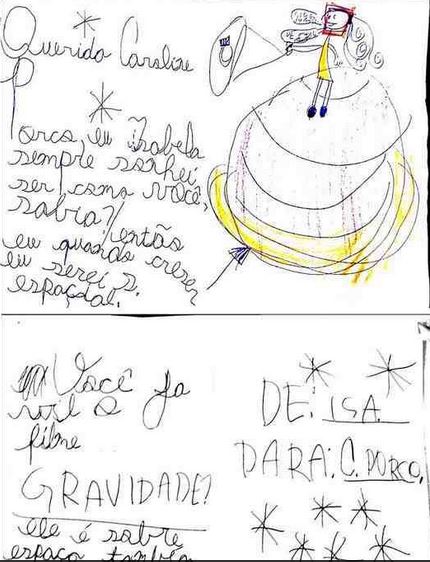 Querida Caroline
Porco, eu Izabela
sempre sonhei
ser como você,
sabia?
então
eu quando crescer
eu serei s.
espaçial.
Você ja
viu o
filme
GRAVIDADE?
ele é sobre
espaço também
DE: ISA.
PARA: C. PORCO,